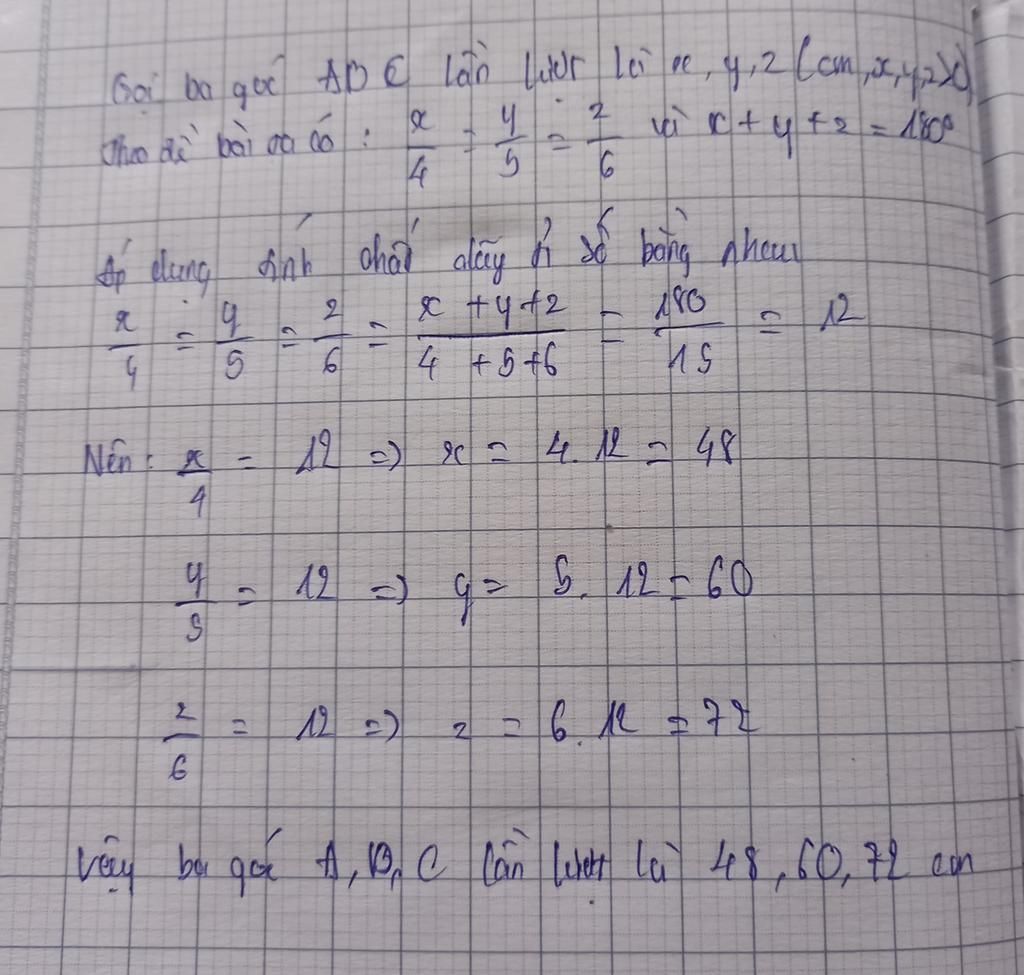 Gọi ba góc A B C lần lượt là x, y, z (cm, x, y, z >
Theo đề bài ta có : x/4 = y/5 = z/6 và x + y + z = 180°
Áp dụng tính chất dãy tỉ số bằng nhau
x/4 = y/5 = z/6 = (x + y + z)/(4 + 5 + 6) = 180/15 = 12
Nên : x/4 = 12 => x = 4. 12 = 48
y/5 = 12 => y = 5. 12 = 60
z/6 = 12 => z = 6. 12 = 72
Vậy ba góc A, B, C lần lượt là 48, 60, 72 cm